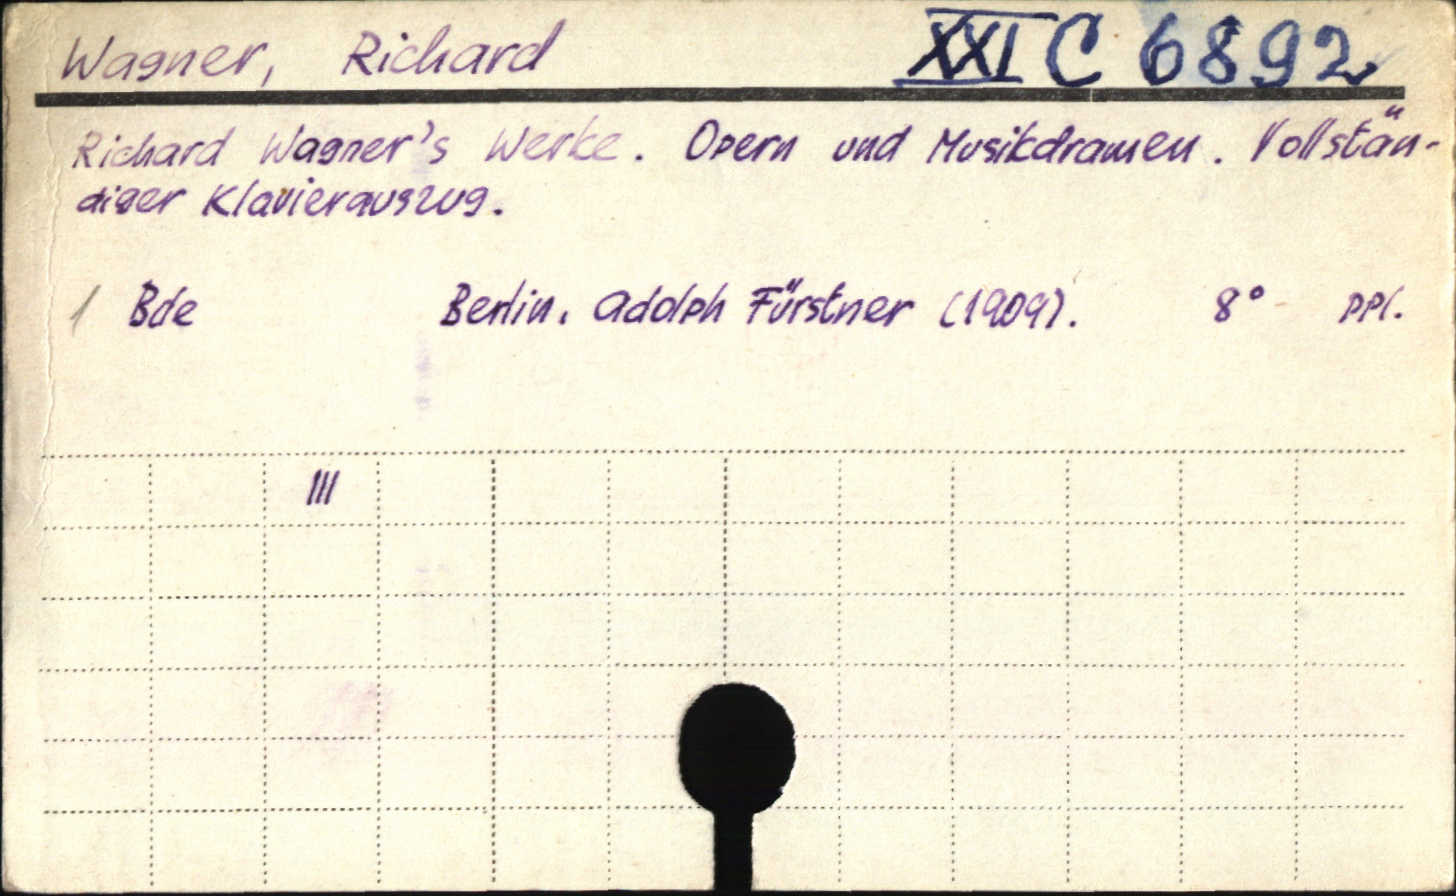 Wagner, Richard XXI C 6892
Richard Wagner's Werke. Opern und Musikdramen. Vollstän-
diger Klavierauszug.
1 Bde Berlin, Adolph Fürstner (1909). 8° ppl.
III